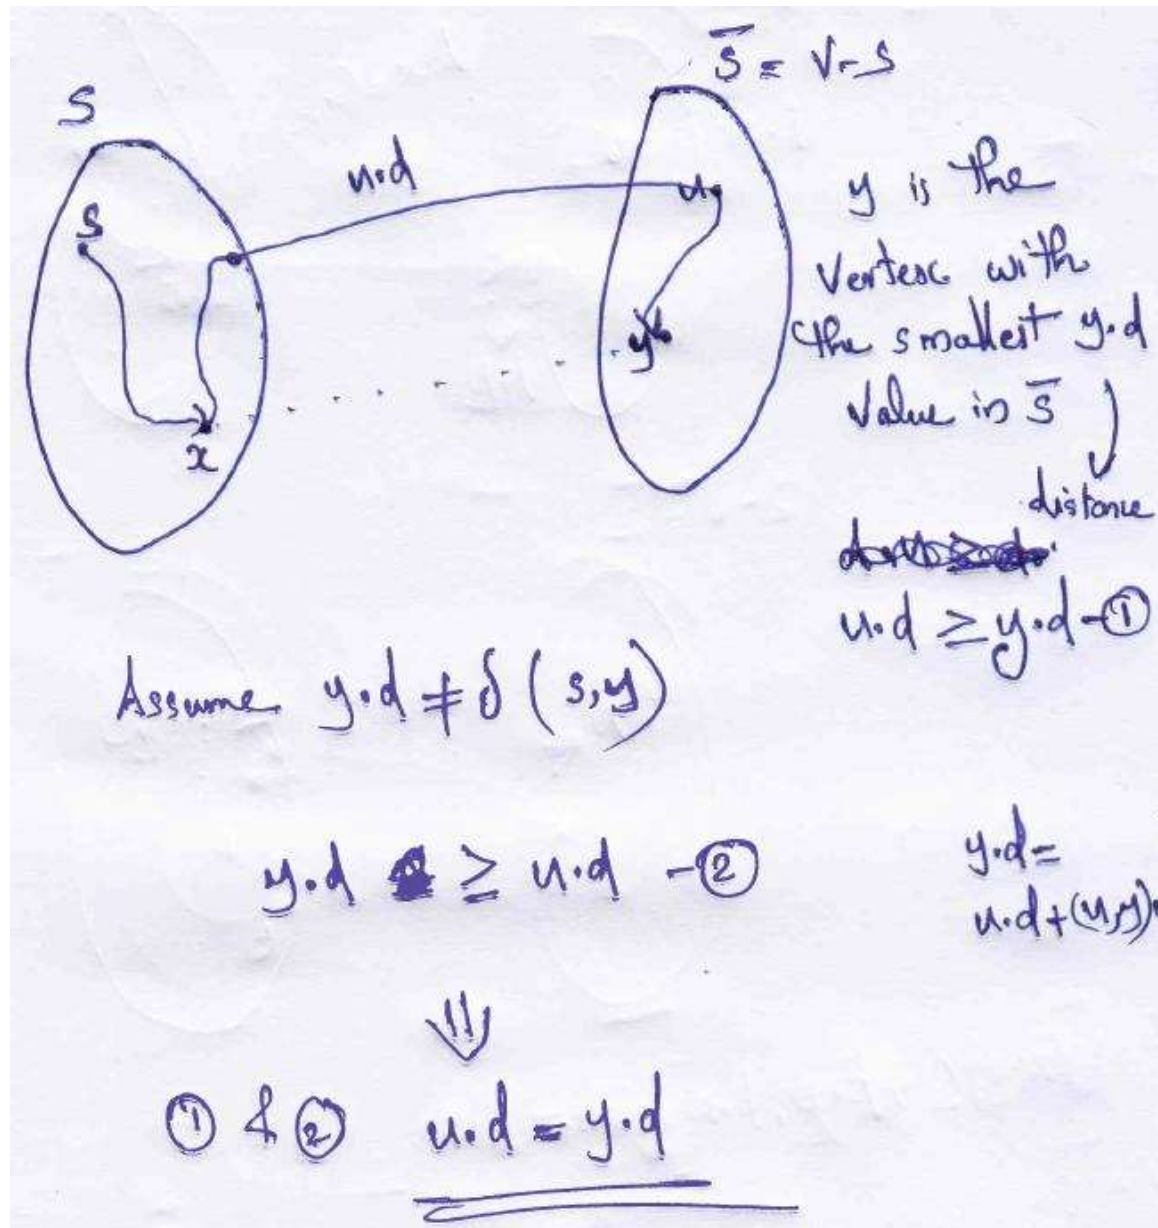 S
S̄ = V-S
u.d
S
u
y
x
y is the
Vertex with
the smallest y.d
Value in S̄
distance
u.d ≥ y.d -①
Assume y.d ≠ δ(s,y)
y.d ≥ u.d -②
y.d =
u.d+(u,y)
⇓
① & ② u.d = y.d